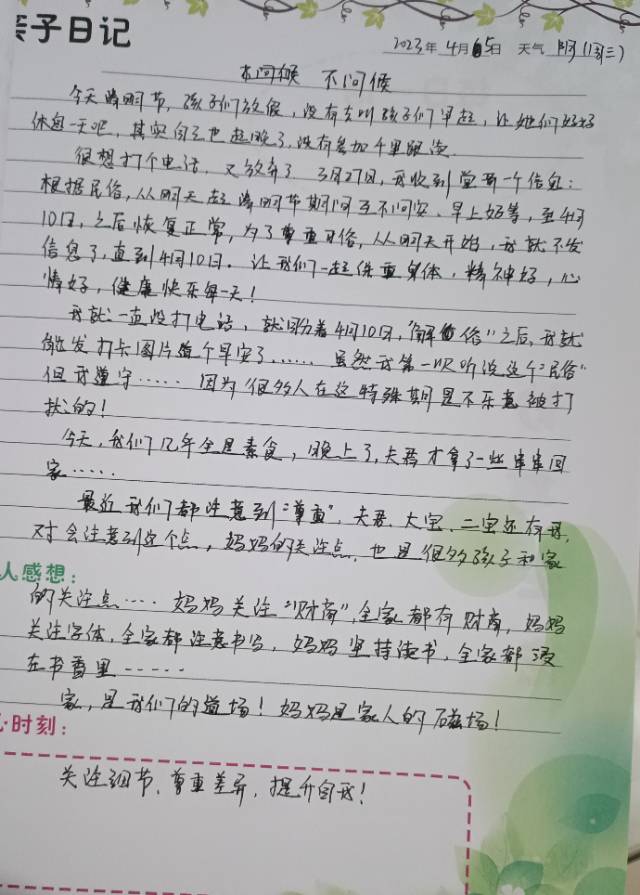 亲子日记
2023年 4月5日 天气 阴(周三)
不问候 不问候
今天清明节,孩子们放假,没有去叫孩子们早起,让她们好好
休息一天吧,其实自己也起晚了,没有参加千里跟读.
很想打个电话,又放弃了 3月27日,我收到堂哥一个信息:
根据民俗,从明天起清明节期间互不问安、早上好等,至4月
10日,之后恢复正常,为了尊重习俗,从明天开始,我就不发
信息了,直到4月10日。让我们一起保重身体,精神好,心
情好,健康快乐每一天!
我就一直没打电话,就盼着4月10日,"解俗"之后,我就
能发打卡图片道个早安了…… 虽然我第一次听说这个"民俗"
但我遵守…… 因为很多人在这特殊期是不乐意被打
扰的!
今天,我们几乎全是素食,晚上了,夫君才拿了一些串串回
家……
最近我们都注意到"尊重",夫君、大宝、二宝还有我,
对会注意到这个点,妈妈的关注点,也是很多孩子和家
人感想:
的关注点…… 妈妈关注"财商",全家都有财商,妈妈
关注字体,全家都注意书写,妈妈坚持读书,全家都浸
在书香里……
家,是我们的道场!妈妈是家人的磁场!
心·时刻:
关注细节,尊重差异,提升自我!